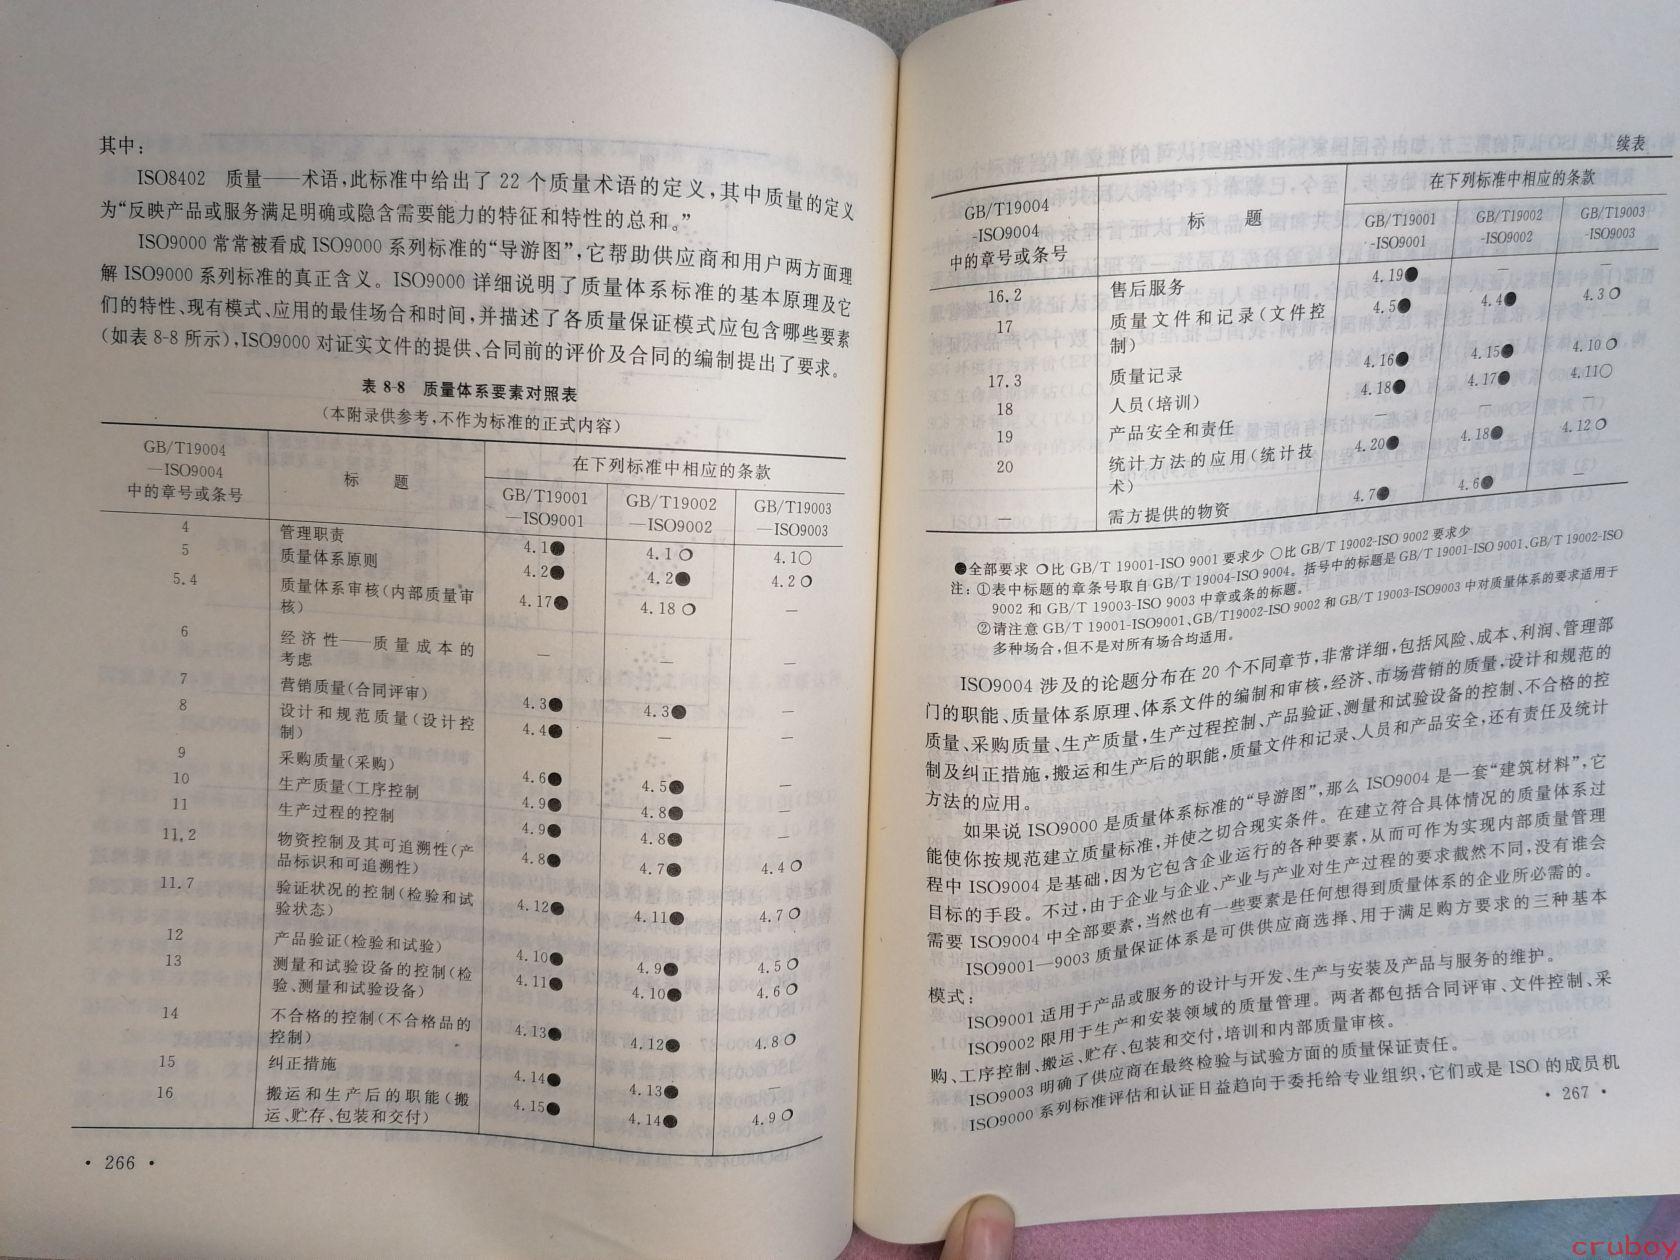 其中：
ISO8402　质量——术语，此标准中给出了 22 个质量术语的定义，其中质量的定义
为“反映产品或服务满足明确或隐含需要能力的特征和特性的总和。”
ISO9000 常常被看成 ISO9000 系列标准的“导游图”，它帮助供应商和用户两方面理
解 ISO9000 系列标准的真正含义。ISO9000 详细说明了质量体系标准的基本原理及它
们的特性、现有模式、应用的最佳场合和时间，并描述了各质量保证模式应包含哪些要素
(如表 8-8 所示)，ISO9000 对证实文件的提供、合同前的评价及合同的编制提出了要求。
表 8-8　质量体系要素对照表
(本附录供参考，不作为标准的正式内容)
GB/T19004
—ISO9004
中的章号或条号
标　题
在下列标准中相应的条款
GB/T19001 GB/T19002 GB/T19003
—ISO9001 —ISO9002 —ISO9003
4 管理职责 4.1● 4.1○ 4.1○
5 质量体系原则 4.2● 4.2● 4.2○
5.4 质量体系审核(内部质量审 4.17● 4.18○ —
核)
6 经济性——质量成本的
考虑 — — —
7 营销质量(合同评审) 4.3● 4.3● —
8 设计和规范质量(设计控 4.4● — —
制)
9 采购质量(采购) 4.6● 4.5● —
10 生产质量(工序控制 4.9● 4.8● —
11 生产过程的控制 4.9● 4.8● —
11.2 物资控制及其可追溯性(产 4.8● 4.7● 4.4○
品标识和可追溯性)
11.7 验证状况的控制(检验和试 4.12● 4.11● 4.7○
验状态)
12 产品验证(检验和试验) 4.10● 4.9● 4.5○
13 测量和试验设备的控制(检 4.11● 4.10● 4.6○
验、测量和试验设备)
14 不合格的控制(不合格品的 4.13● 4.12● 4.8○
控制)
15 纠正措施 4.14● 4.13● —
16 搬运和生产后的职能(搬 4.15● 4.14● 4.9○
运、贮存、包装和交付)
· 266 ·
续表
GB/T19004
-ISO9004
中的章号或条号
标　题
在下列标准中相应的条款
GB/T19001 GB/T19002 GB/T19003
-ISO9001 -ISO9002 -ISO9003
16.2 售后服务 4.19● — —
17 质量文件和记录(文件控 4.5● 4.4● 4.3○
制)
17.3 质量记录 4.16● 4.15● 4.10○
18 人员(培训) 4.18● 4.17● 4.11○
19 产品安全和责任 — — —
20 统计方法的应用(统计技 4.20● 4.18● 4.12○
术)
— 需方提供的物资 4.7● 4.6● —
●全部要求 ○比 GB/T 19001-ISO 9001 要求少 ○比 GB/T 19002-ISO 9002 要求少
注：①表中标题的章条号取自 GB/T 19004-ISO 9004。括号中的标题是 GB/T 19001-ISO 9001、GB/T 19002-ISO
9002 和 GB/T 19003-ISO 9003 中章或条的标题。
②请注意 GB/T 19001-ISO9001、GB/T19002-ISO 9002 和 GB/T 19003-ISO9003 中对质量体系的要求适用于
多种场合，但不是对所有场合均适用。
ISO9004 涉及的论题分布在 20 个不同章节，非常详细，包括风险、成本、利润、管理部
门的职能、质量体系原理、体系文件的编制和审核，经济、市场营销的质量，设计和规范的
质量、采购质量、生产质量，生产过程控制、产品验证、测量和试验设备的控制、不合格的控
制及纠正措施，搬运和生产后的职能，质量文件和记录、人员和产品安全，还有责任及统计
方法的应用。
如果说 ISO9000 是质量体系标准的“导游图”，那么 ISO9004 是一套“建筑材料”，它
能使你按规范建立质量标准，并使之切合现实条件。在建立符合具体情况的质量体系过
程中 ISO9004 是基础，因为它包含企业运行的各种要素，从而可作为实现内部质量管理
目标的手段。不过，由于企业与企业、产业与产业对生产过程的要求截然不同，没有谁会
需要 ISO9004 中全部要素，当然也有一些要素是任何想得到质量体系的企业所必需的。
ISO9001—9003 质量保证体系是可供供应商选择、用于满足购方要求的三种基本
模式：
ISO9001 适用于产品或服务的设计与开发、生产与安装及产品与服务的维护。
ISO9002 限用于生产和安装领域的质量管理。两者都包括合同评审、文件控制、采
购、工序控制、搬运、贮存、包装和交付，培训和内部质量审核。
ISO9003 明确了供应商在最终检验与试验方面的质量保证责任。
ISO9000 系列标准评估和认证日益趋向于委托给专业组织，它们或是 ISO 的成员机
· 267 ·
cruboy